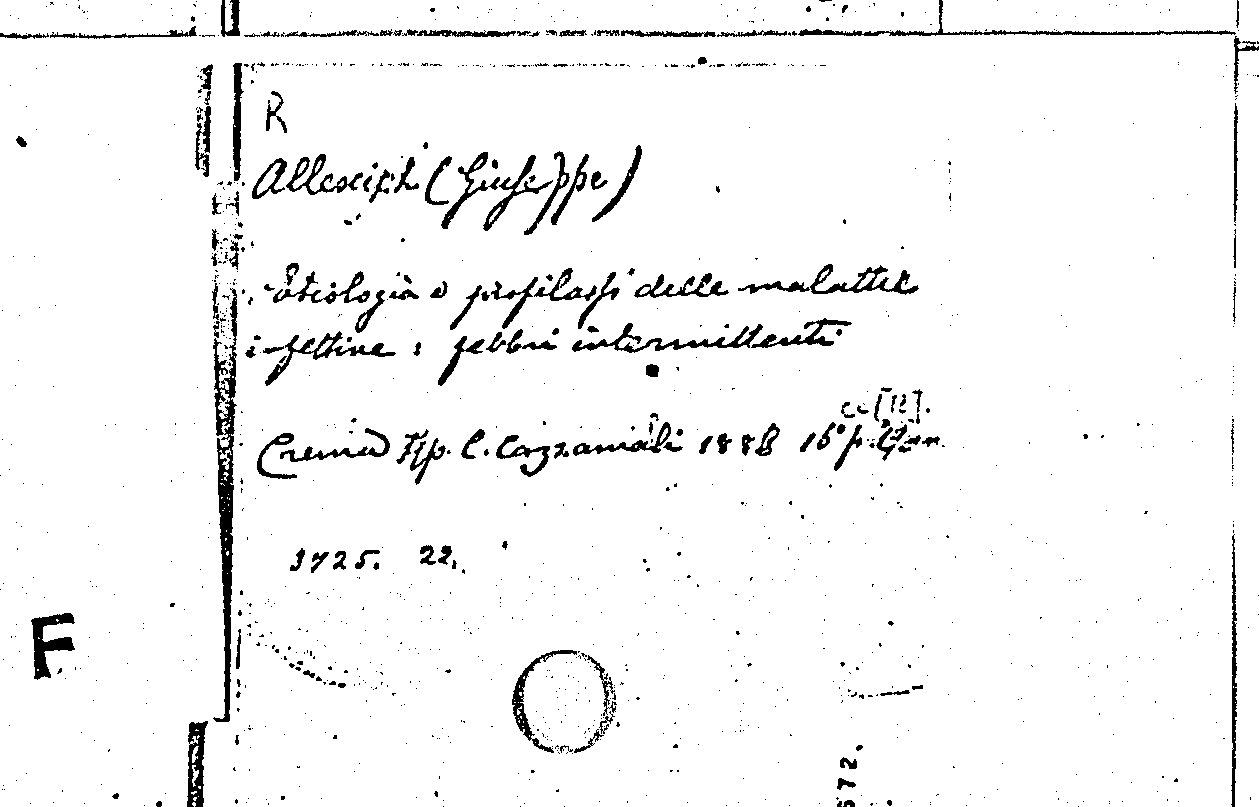 R
(Giuseppe)
Etiologia e profilassi delle malattie
infettive : febbri intermittenti
cc[12].
Crema Tip. C. Cazzamalli 1888 16° p.
3725. 22.
F
572.